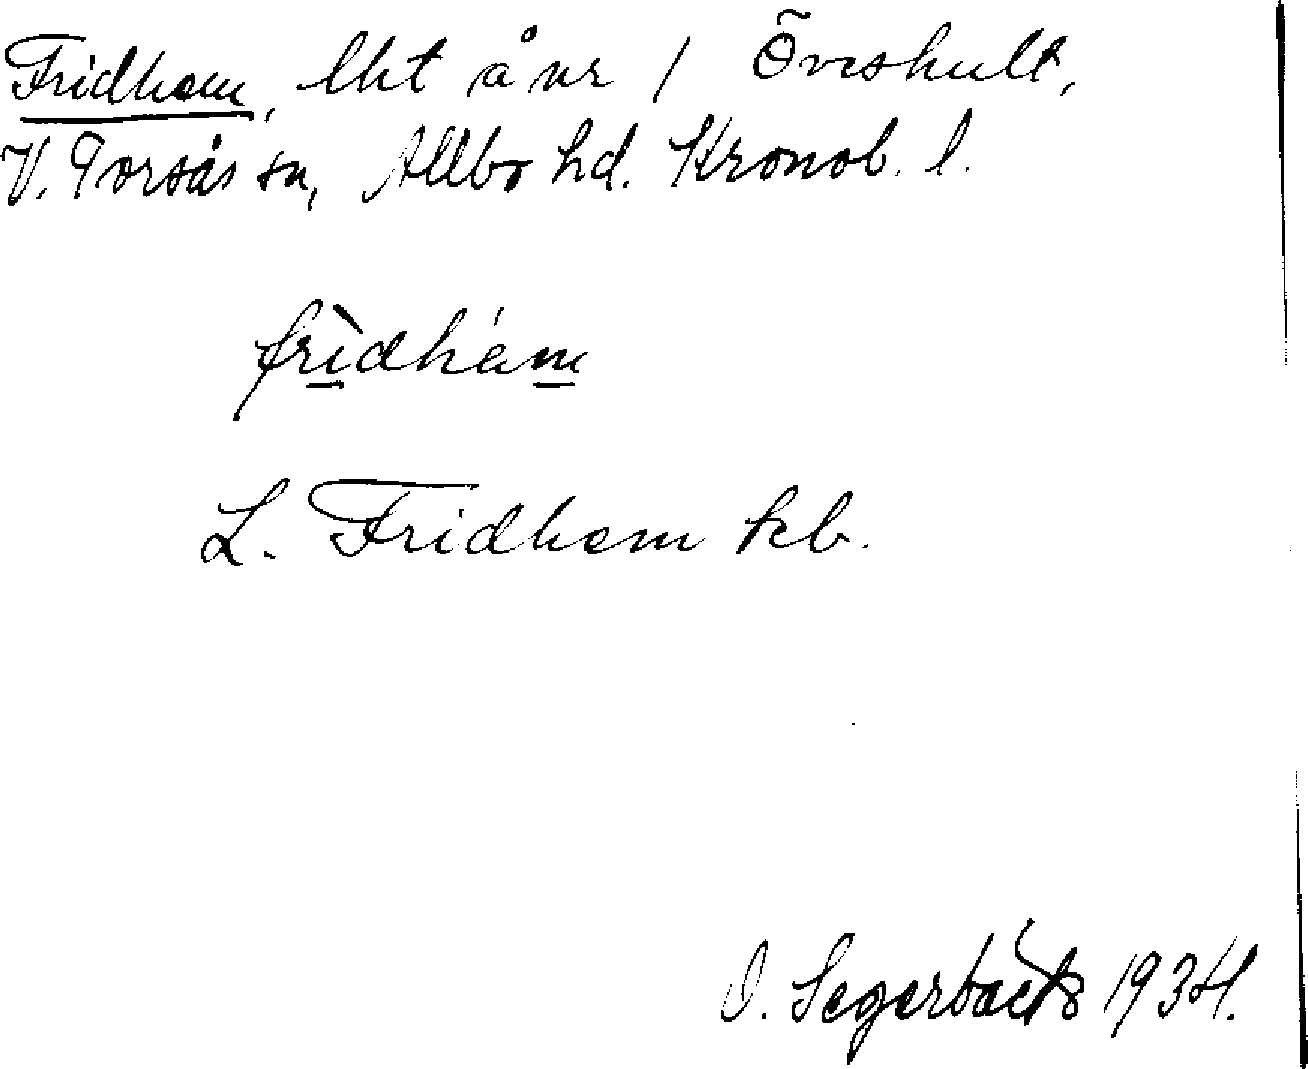 Fridhem, lht å nr 1 Öveshult,
V. Torsås sn, Allbo hd. Kronob. l.
fridhem
L. Fridhem kb.
O. Segerbäck 1934.